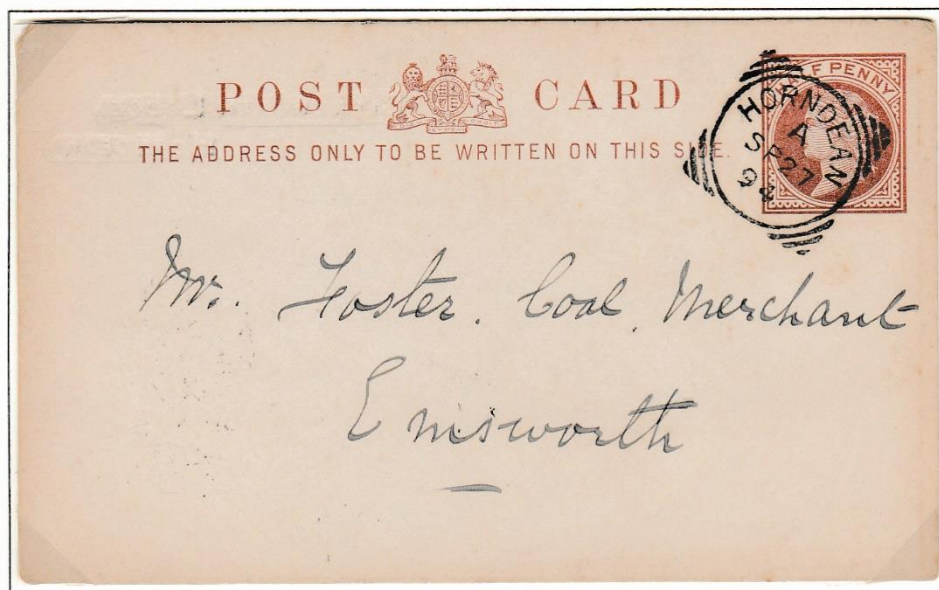 POST CARD
THE ADDRESS ONLY TO BE WRITTEN ON THIS SIDE.
PENNY
HORNDEAN
A
SP 27
94
Mr. Foster. Coal Merchant
Emsworth